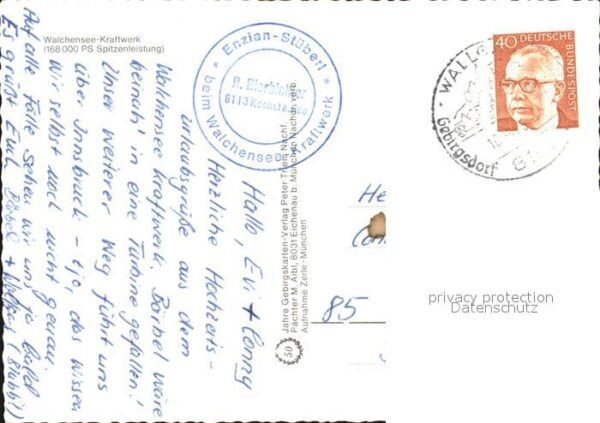 Walchensee-Kraftwerk
(168 000 PS Spitzenleistung)
* Enzian-Stüberl *
beim Walchensee-Kraftwerk
R. Bierbichler
8113 Kochel a. See
Hallo, Evi + Conny
Herzliche Hochzeits-
urlaubsgrüße aus dem
Walchensee Kraftwerk. Bärbel wäre
beinah' in eine Turbine gefallen!
Unser weiterer Weg führt uns
über Innsbruck - tja, das wissen
wir selbst noch nicht genau.
Auf alle Fälle sehen wir uns ja bald
Es grüßt Euch Bärbel +
50 Jahre Gebirgskarten-Verlag Peter Thein Nachf.
Pächter M. Aibl, 8031 Eichenau b. München Nachdr. verb.
Aufnahme Zerle - München
50
He
Con
85
WALLG
Gebirgsdorf
81
40
DEUTSCHE
BUNDESPOST
privacy protection
Datenschutz